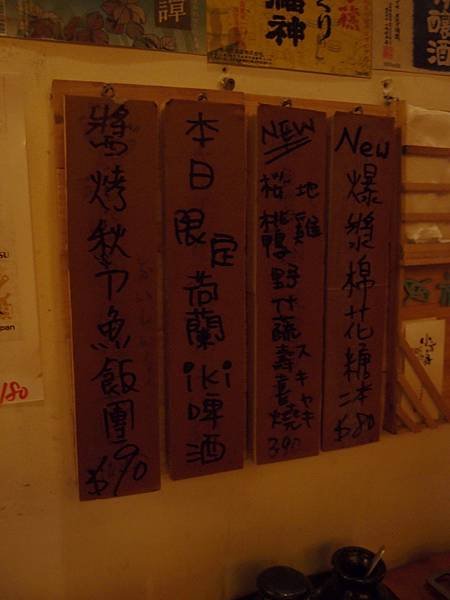 New
爆漿棉花糖二本
$80
NEW
地雞
桜桃鴨野代蔬壽喜燒
スキヤキ
390
本日限定荷蘭iki啤酒
醬烤秋刀魚飯團
$90
180
福神
くり
譚
pan